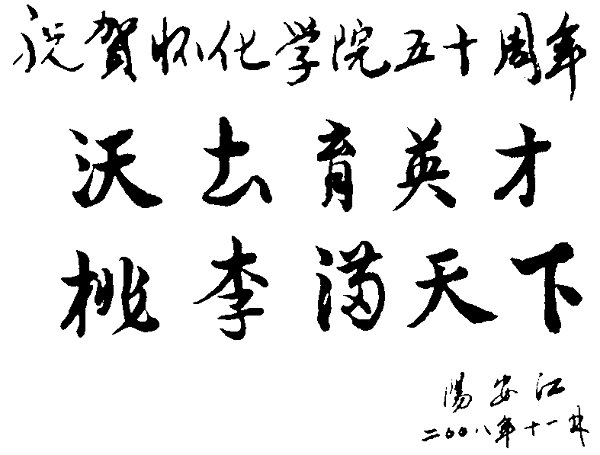 祝賀怀化学院五十周年
沃土育英才
桃李满天下
陽安江
二〇〇八年十一月